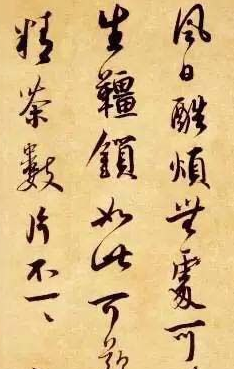 風日酷煩無處可
生韁鎖如此可歎
精茶數片不一一